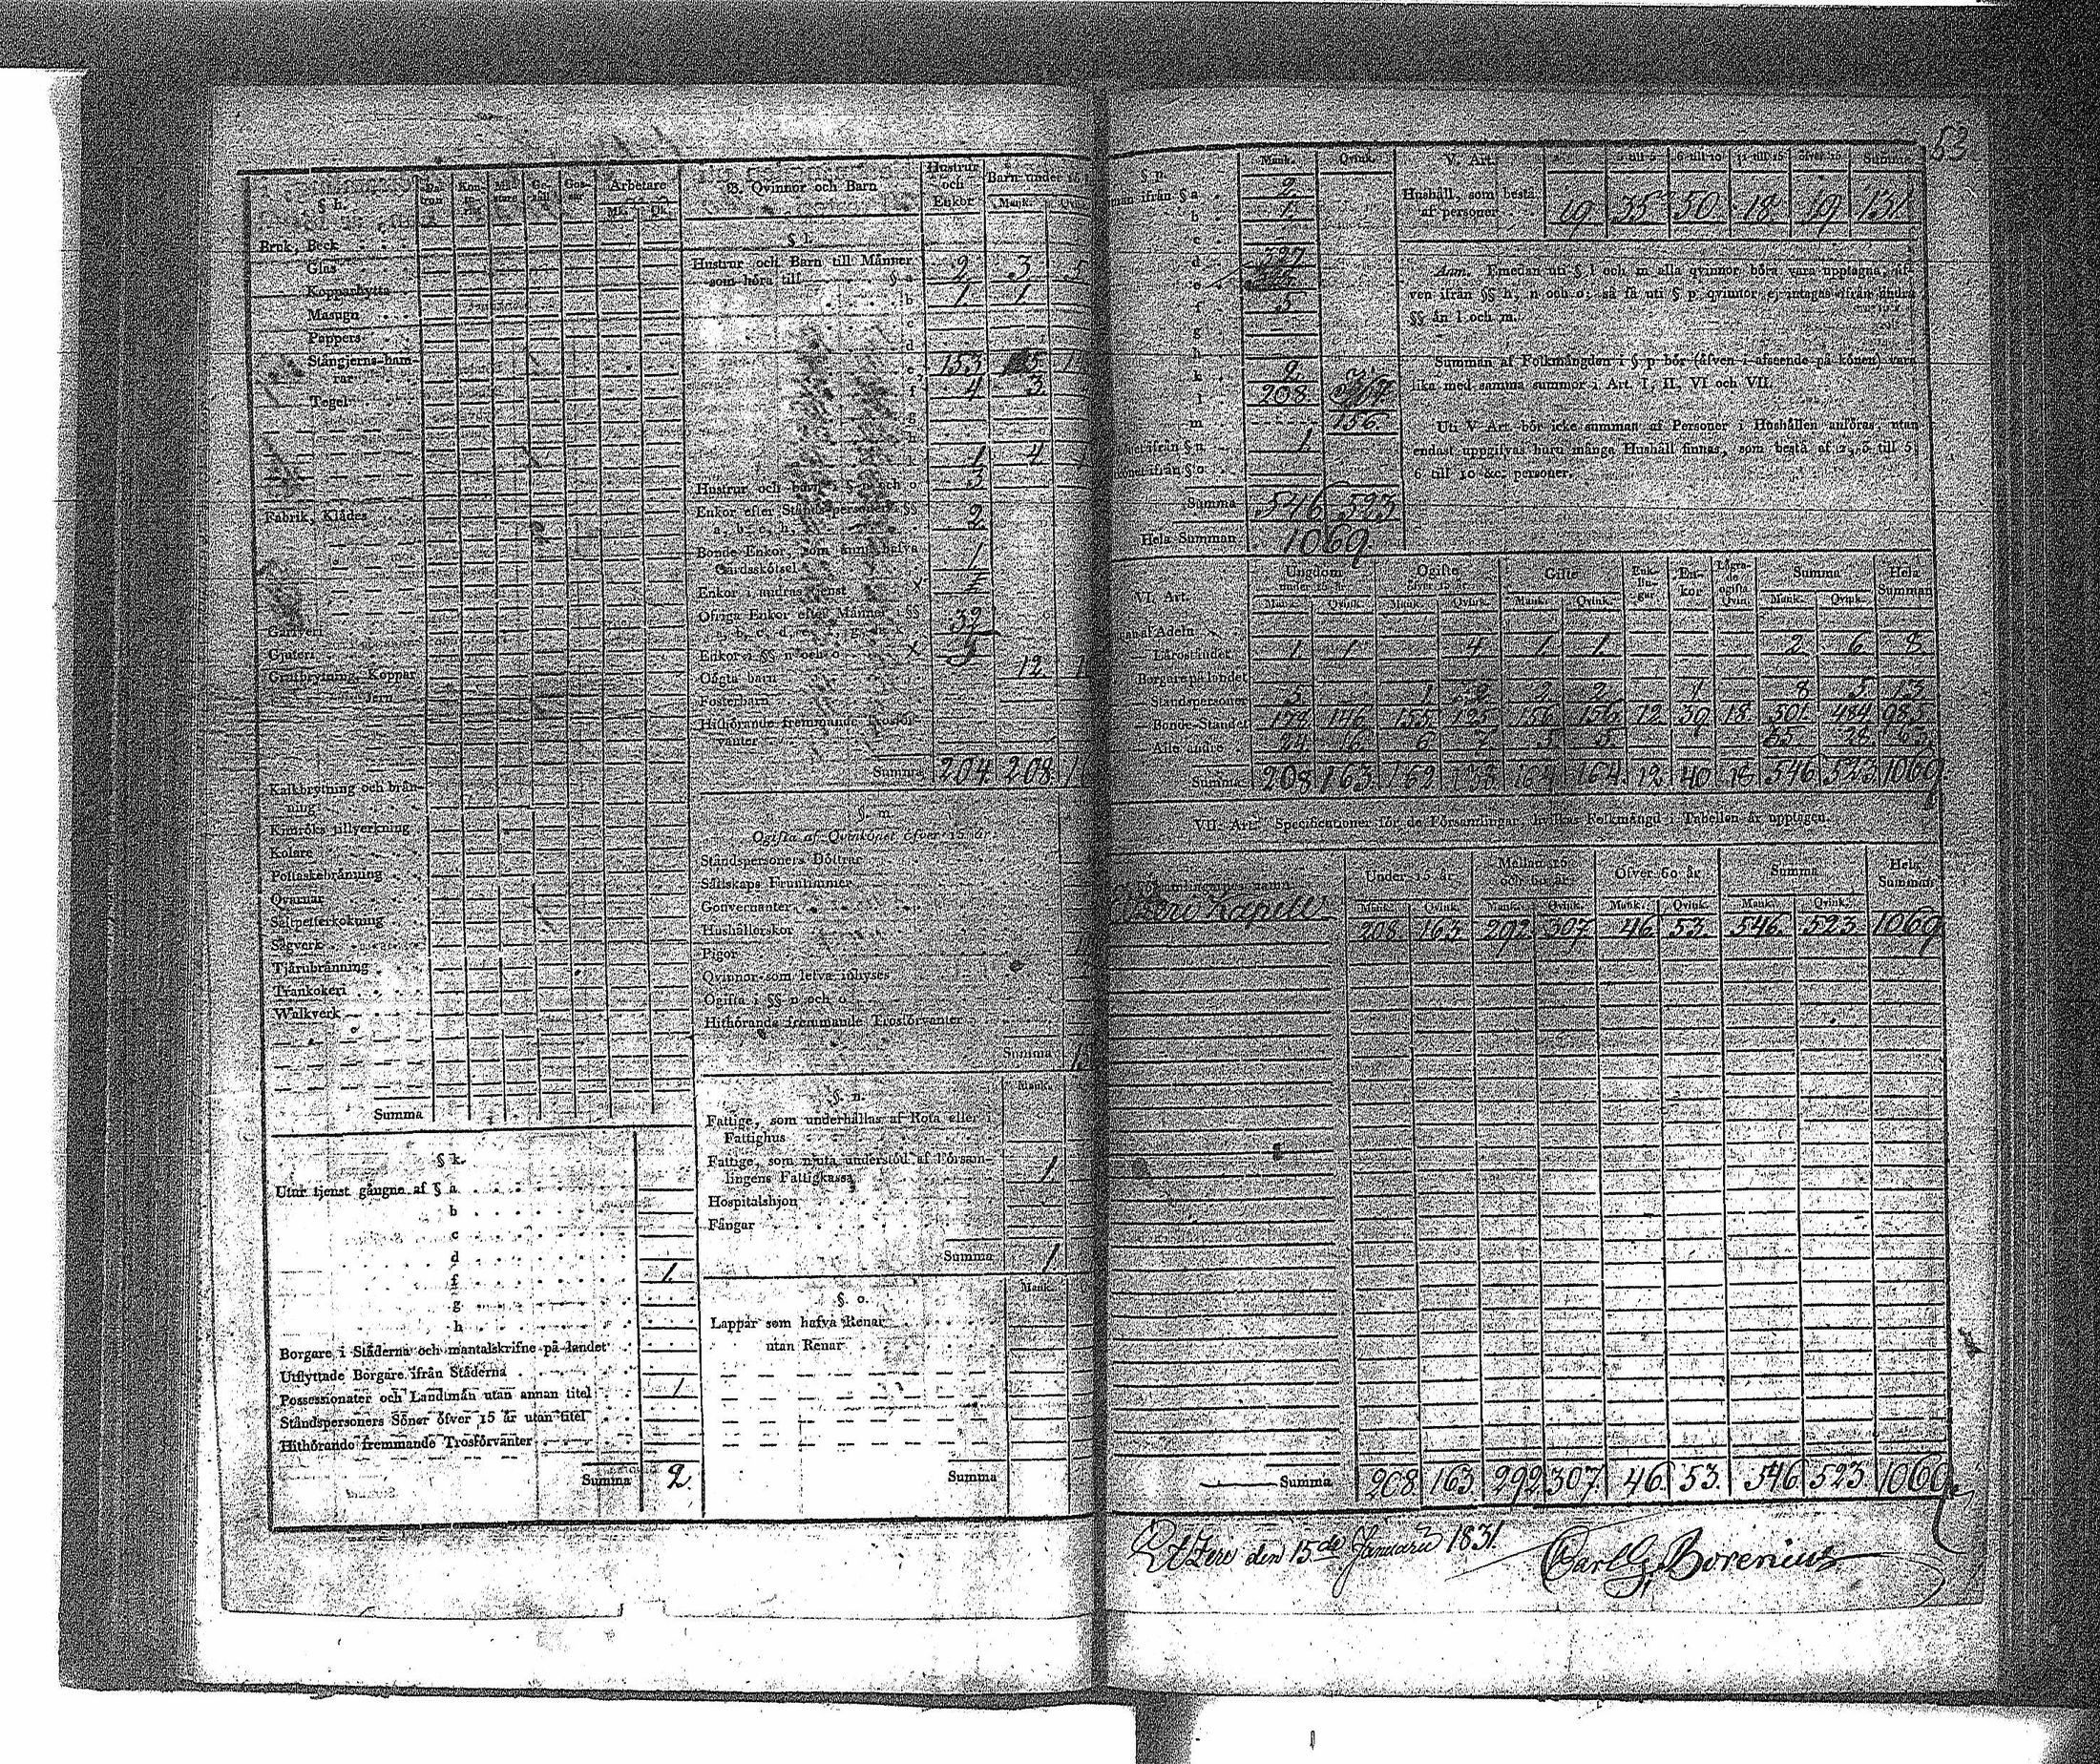 53
§ h.
Pa-
tron
Kon-
to-
rist
Mä-
stare
Ge-
säll
Gos-
sar
Arbetare
Mk. Qk.
Bruk, Beck
Glas
Kopparhytta
Masugn
Pappers
Stångjerns-ham-
rar
Tegel
Fabrik, Klädes
Garfveri
Gjuteri
Grufbrytning, Koppar
Jern
Kalkbrytning och brän-
ning
Kimröks tillverkning
Kolare
Pottaskebränning
Qvarnar
Salpetterkokning
Sågverk
Tjärubränning
Trankokeri
Walkverk
Summa
§ k.
Utur tjenst gångne af § a
b
c
d
f 1.
g
h
Borgare i Städerna och mantalskrifne på landet
Utflyttade Borgare ifrån Städerna
Possessionater och Landtmän utan annan titel 1
Ståndspersoners Söner öfver 15 år utan titel
Hithörande fremmande Trosförvanter
Summa 2.
B. Qvinnor och Barn
Hustrur
och
Enkor
Barn under 15
Mank.
§ l.
Hustrur och Barn till Männer
som höra till § a 2. 3. 5
b 1. 1.
c
d
e 153
f 4 3.
g
h
k 1 4
Hustrur och barn i §§ n och o 3
Enkor efter Ståndspersoner i §§
a, b, c, h, 2.
Bonde Enkor, som ännu hafva
Gårdsskötsel 1
Enkor i andras tjenst
Öfriga Enkor efter Männer i §§
a, b, c, d, e, f, g, h, k
Enkor i §§ n och o
Oägta barn 12.
Fosterbarn
Hithörande fremmande Trosför-
vanter
Summa 204. 208.
§. m.
Ogifta af Qvinkönet öfver 15 år.
Ståndspersoners Döttrar
Sällskaps Fruntimmer
Gouvernanter
Hushållerskor
Pigor
Qvinnor som lefva inhyses
Ogifta i §§ n och o
Hithörande fremmande Trosförvanter
Summa
Mank.
§. n.
Fattige, som underhållas af Rota eller i
Fattighus
Fattige, som njuta understöd af Försam-
lingens Fattigkassa 1.
Hospitalshjon
Fångar
Summa 1.
Mank.
§. o.
Lappar som hafva Renar
utan Renar
Summa
§ p.
Mank. Qvink.
män ifrån § a 2.
b 1.
c
d 327
e
f 5
g
h
k 2.
l 208.
m 156.
ifrån § n 1.
ifrån § o
Summa 546 523
Hela Summan 1069.
V. Art.
3 till 5 6 till 10 11 till 15 öfver 15 Summa
Hushåll, som bestå
af personer 19 35 50. 18. 19 131.
Anm. Emedan uti § l och m alla qvinnor böra vara upptagna, äf-
ven ifrån §§ h, n och o; så få uti § p qvinnor ej intagas ifrån andra
§§ än l och m.
Summan af Folkmängden i § p bör (äfven i afseende på könen) vara
lika med samma summor i Art. I, II, VI och VII.
Uti V Art. bör icke summan af Personer i Hushållen anföras, utan
endast uppgifvas huru många Hushåll finnas, som bestå af 2, 3 till 5,
6 till 10 &c. personer.
VI. Art.
Ungdom
under 15 år
Ogifte
öfver 15 år
Gifte
Enk-
lin-
gar
En-
kor
Lägra-
de
ogifta
Qvin.
Summa
Hela
Summan
Mank. Qvink. Mank. Qvink. Mank. Qvink. Mank. Qvink.
af Adeln
Läroståndet 1. 1 4 1 1 2 6. 8.
Borgare på landet
Ståndspersoner 5 1 2 2 2 1 8 5 13
Bonde-Ståndet 178 146 155 125 156 156 12 39 18 501 484 985
Alle andre 24 16 6 7 5 5 35 28 63
Summa 208 163 162 138 164 164. 12. 40 18 546 523 1069.
VII. Art. Specificationer för de Församlingar, hvilkas Folkmängd i Tabellen är upptagen.
Församlingarnes namn
Under 15 år
Mellan 15
och 60 år
Öfver 60 år
Summa
Hela
Summan
Mank. Qvink. Mank. Qvink. Mank. Qvink. Mank. Qvink.
Kapell 208 163 292 307 46 53. 546. 523 1069
Summa 208 163. 292 307. 46. 53. 546 523 1069
den 15de Januarii 1831.
Carl G. Borenius